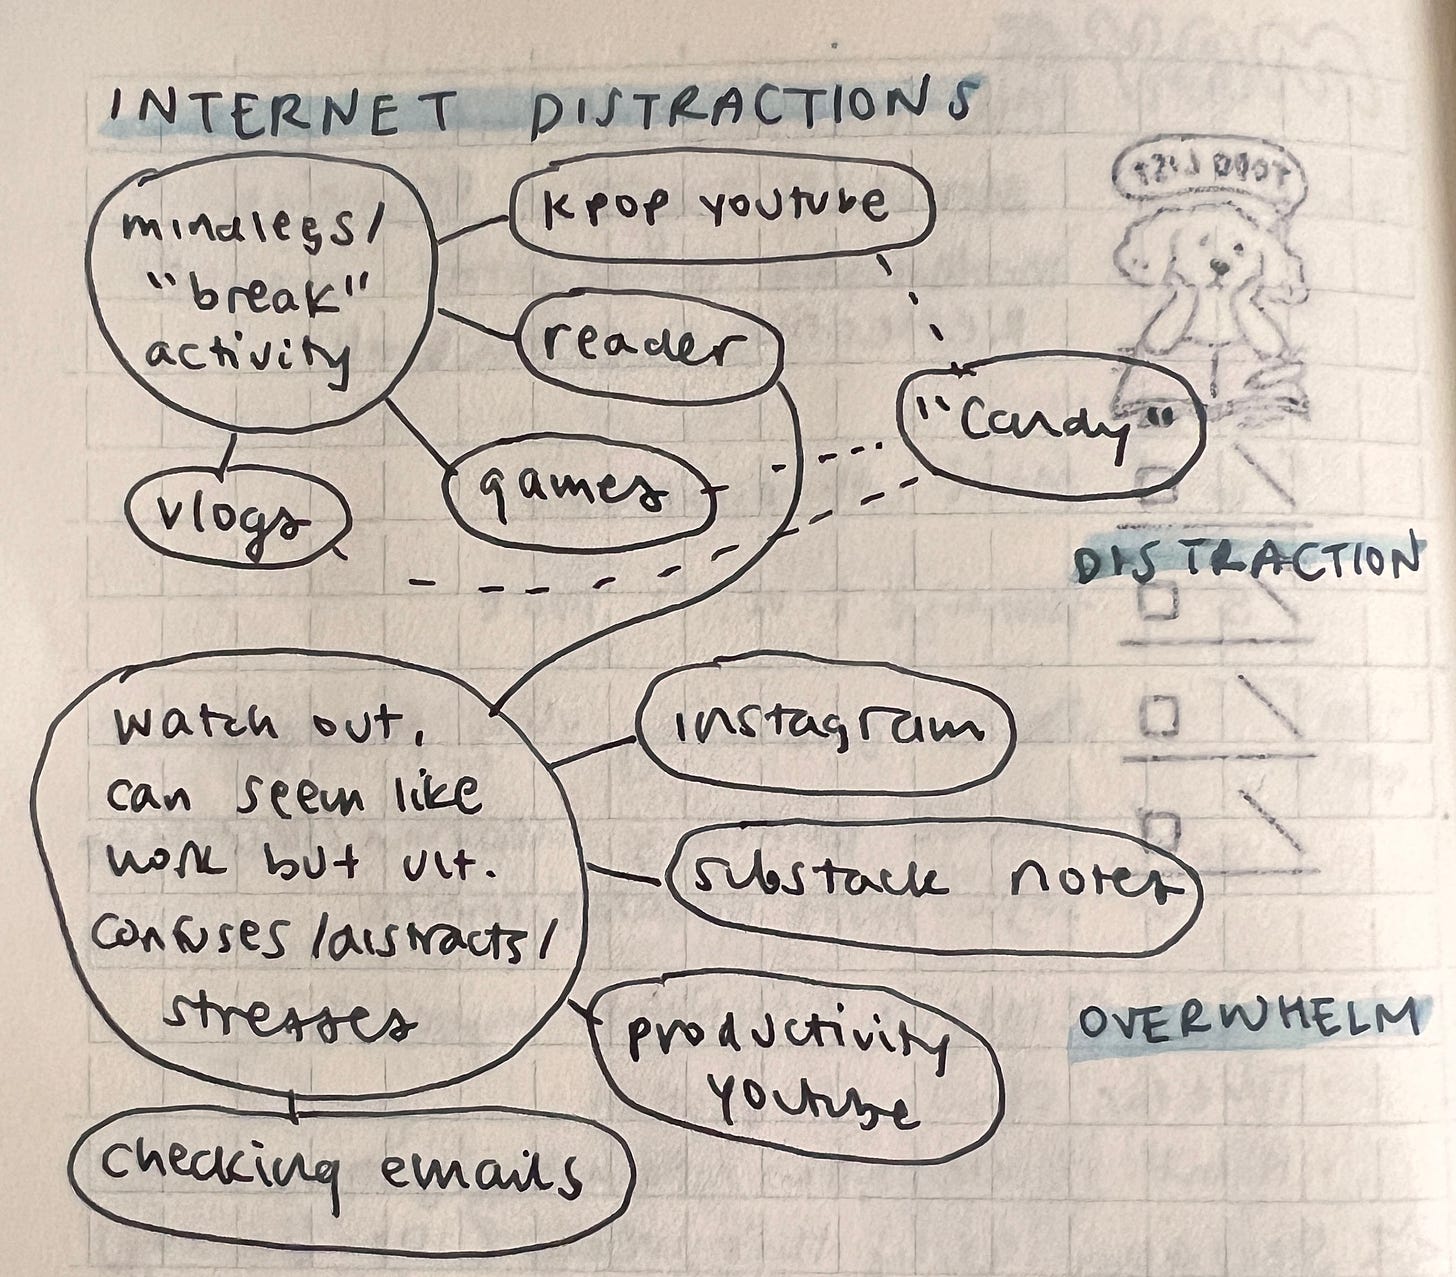 INTERNET DISTRACTIONS
mindless/
"break"
activity
kpop youtube
reader
games
vlogs
"Candy"
DISTRACTION
watch out,
can seem like
work but ult.
confuses/distracts/
stresses
instagram
substack notes
productivity
youtube
checking emails
OVERWHELM
TODO LIST